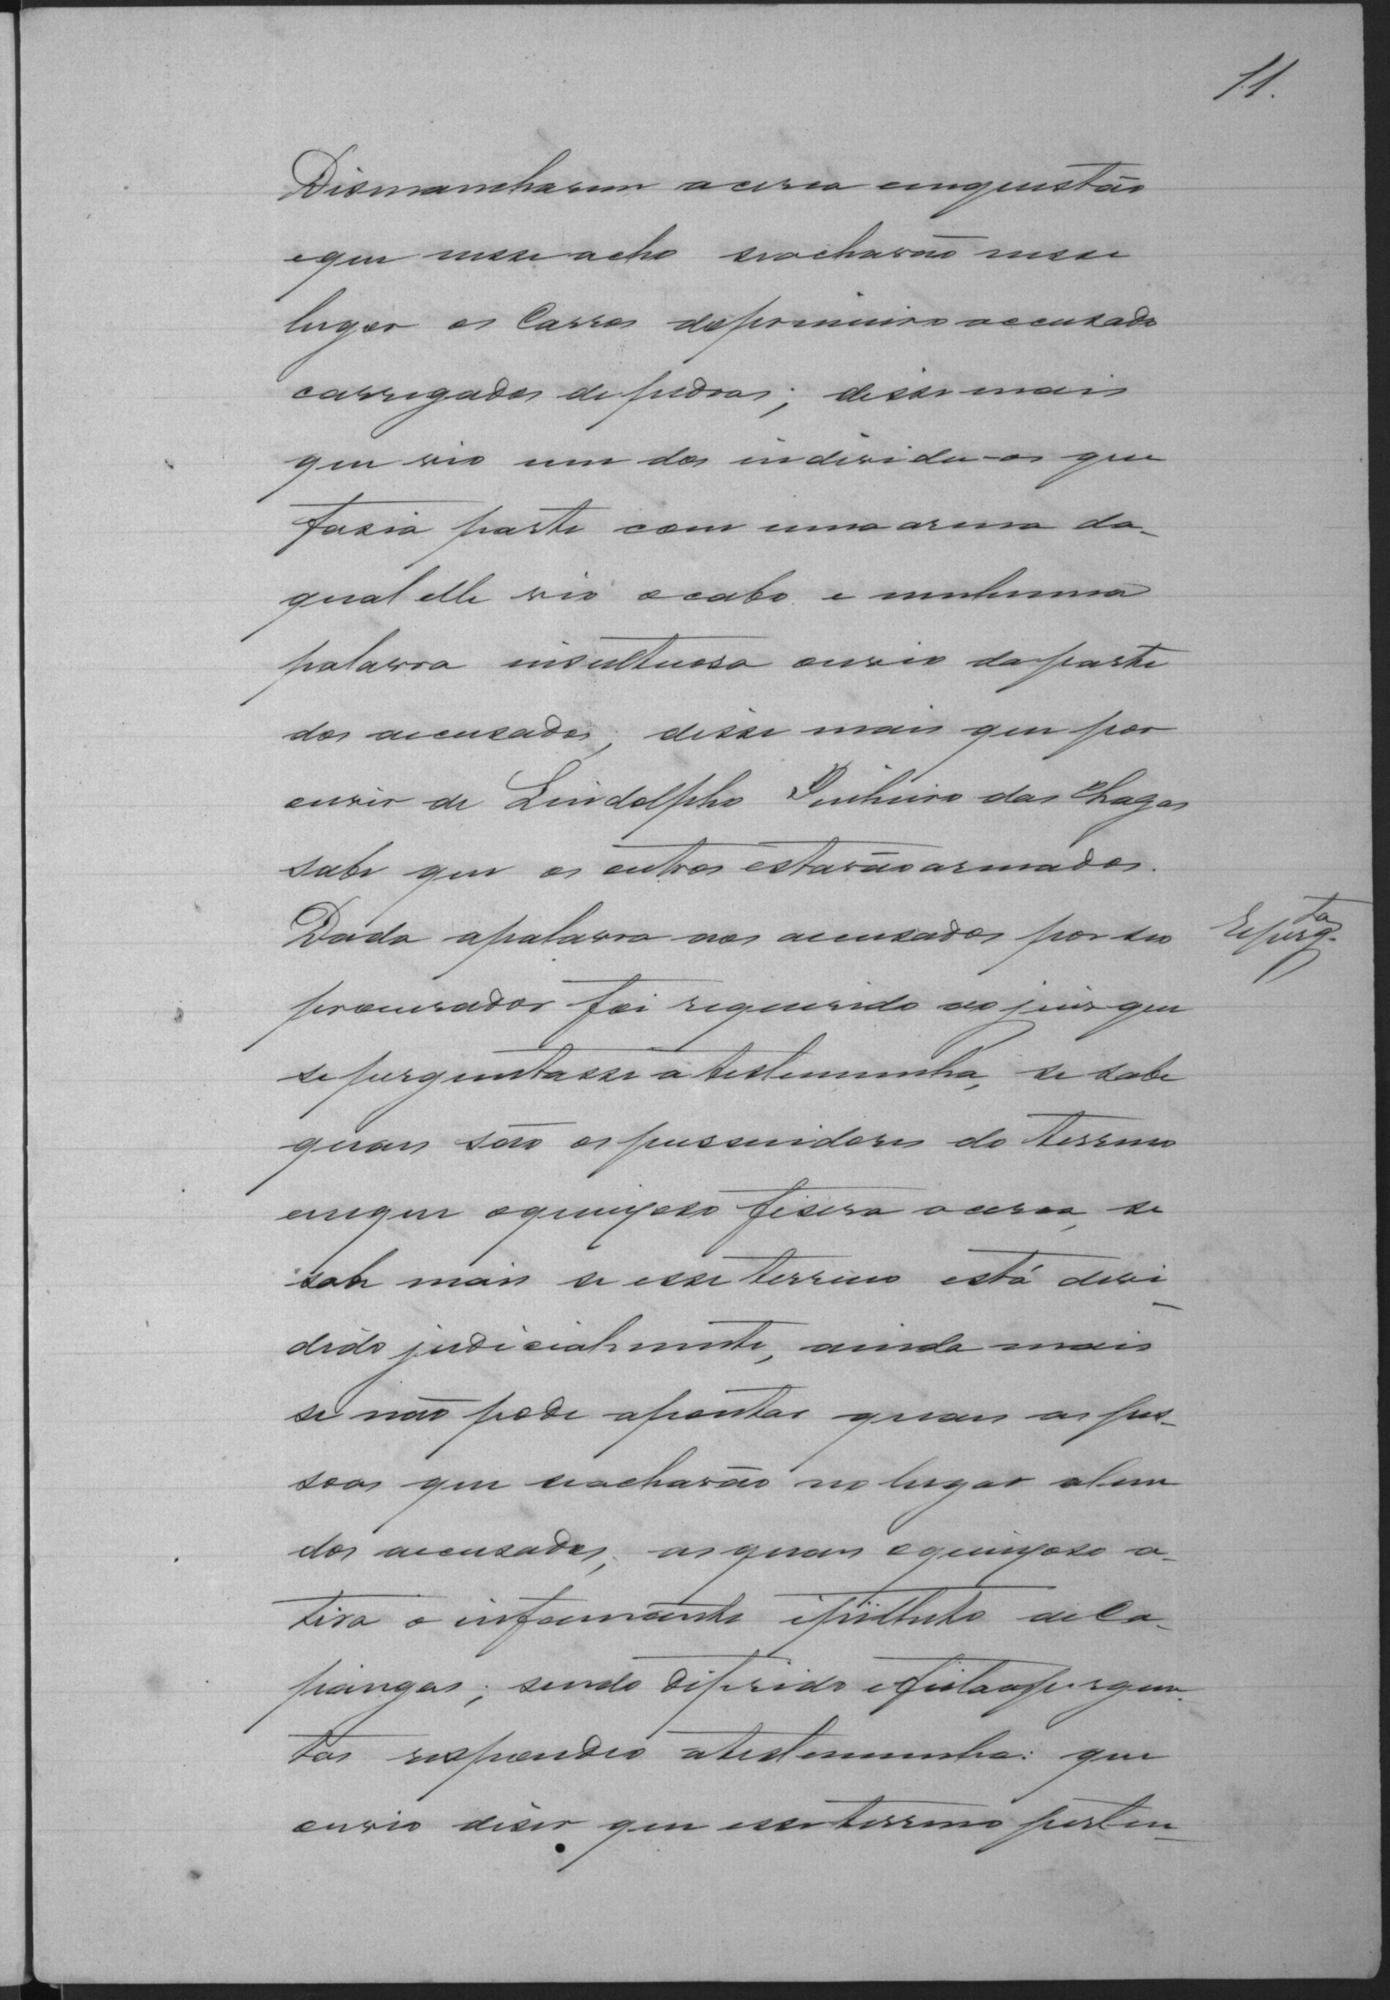 11.
Dismancharum a cerca emquestão
eque nesse acho seacharão nesse
lugar os Carros doprimeiro accusado
carregados depedras; disse mais
que vio um dos individu-os que
fasia parte com uma arma da-
qual elle vio o cabo e nenhuma
palavra insultuosa ouvio daparte
dos accusados, disse mais que por
ouvir de Lindolpho Pinheiro das Chagas
sabe que os outros estavão armados.
Dada apalavra aos accusados por seu
procurador foi requerido ao juis que
seperguntasse a testemunha, se sabe
quais são os pussuidores do terreno
emque oqueixoso fisera a cerca, se
sabe mais se esse terreno está devi-
dido judicialmente, ainda mais
se não pode apontar quais as pes-
soas que seacharão no lugar alem
dos accusados, as quais oqueixoso a-
tira o infamante ipitheto de Ca-
pangas; sendo diferido efeitaaspergun-
tas respondeo atestemunha: que
ouvio diser que esse terreno perten-